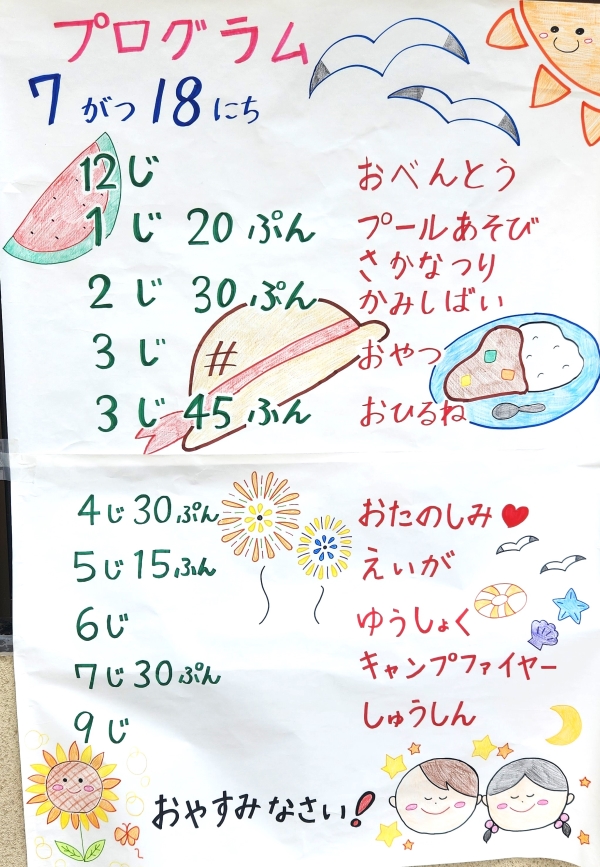 プログラム
7がつ18にち
12じ おべんとう
1じ20ぷん プールあそび
さかなつり
2じ30ぷん かみしばい
3じ おやつ
3じ45ふん おひるね
4じ30ぷん おたのしみ♥
5じ15ふん えいが
6じ ゆうしょく
7じ30ぷん キャンプファイヤー
9じ しゅうしん
おやすみなさい!